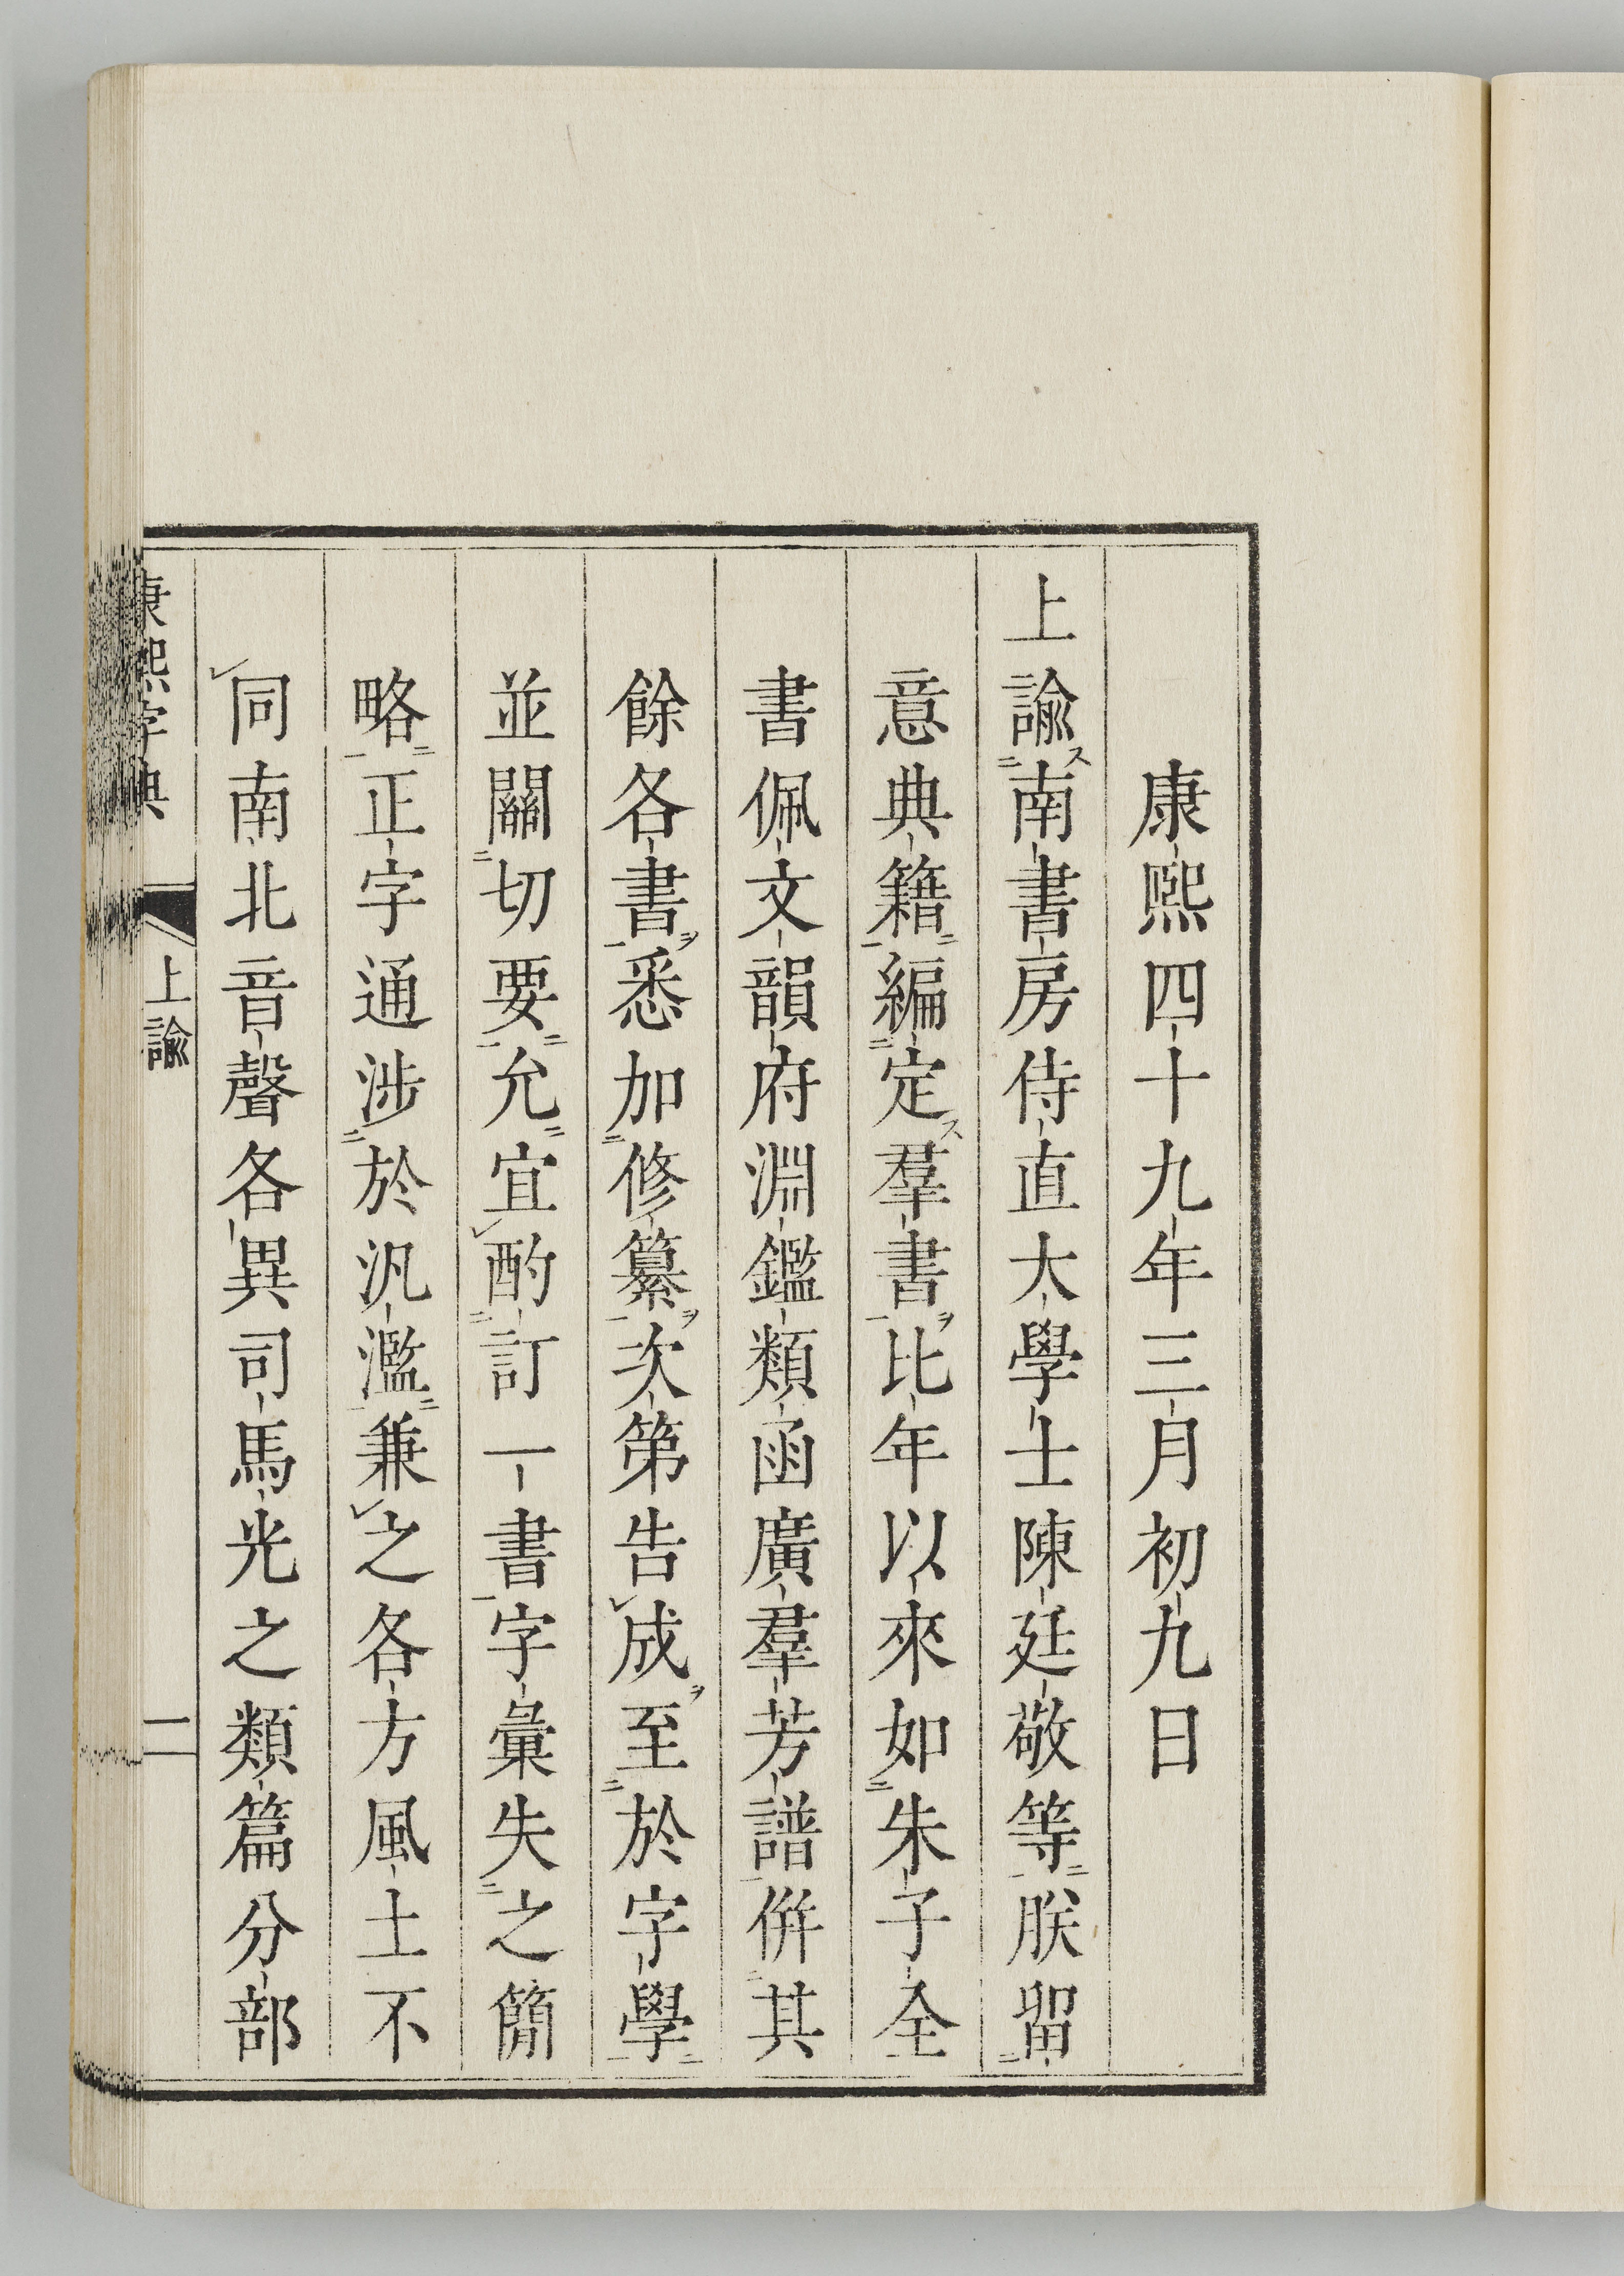 康熙四十九年三月初九日
上諭南書房侍直大學士陳廷敬等朕留
意典籍編定羣書比年以來如朱子全
書佩文韻府淵鑑類函廣羣芳譜併其
餘各書悉加修纂次第告成至於字學
並關切要允宜酌訂一書字彙失之簡
略正字通涉於汎濫兼之各方風土不
同南北音聲各異司馬光之類篇分部
康熙字典 上諭 二